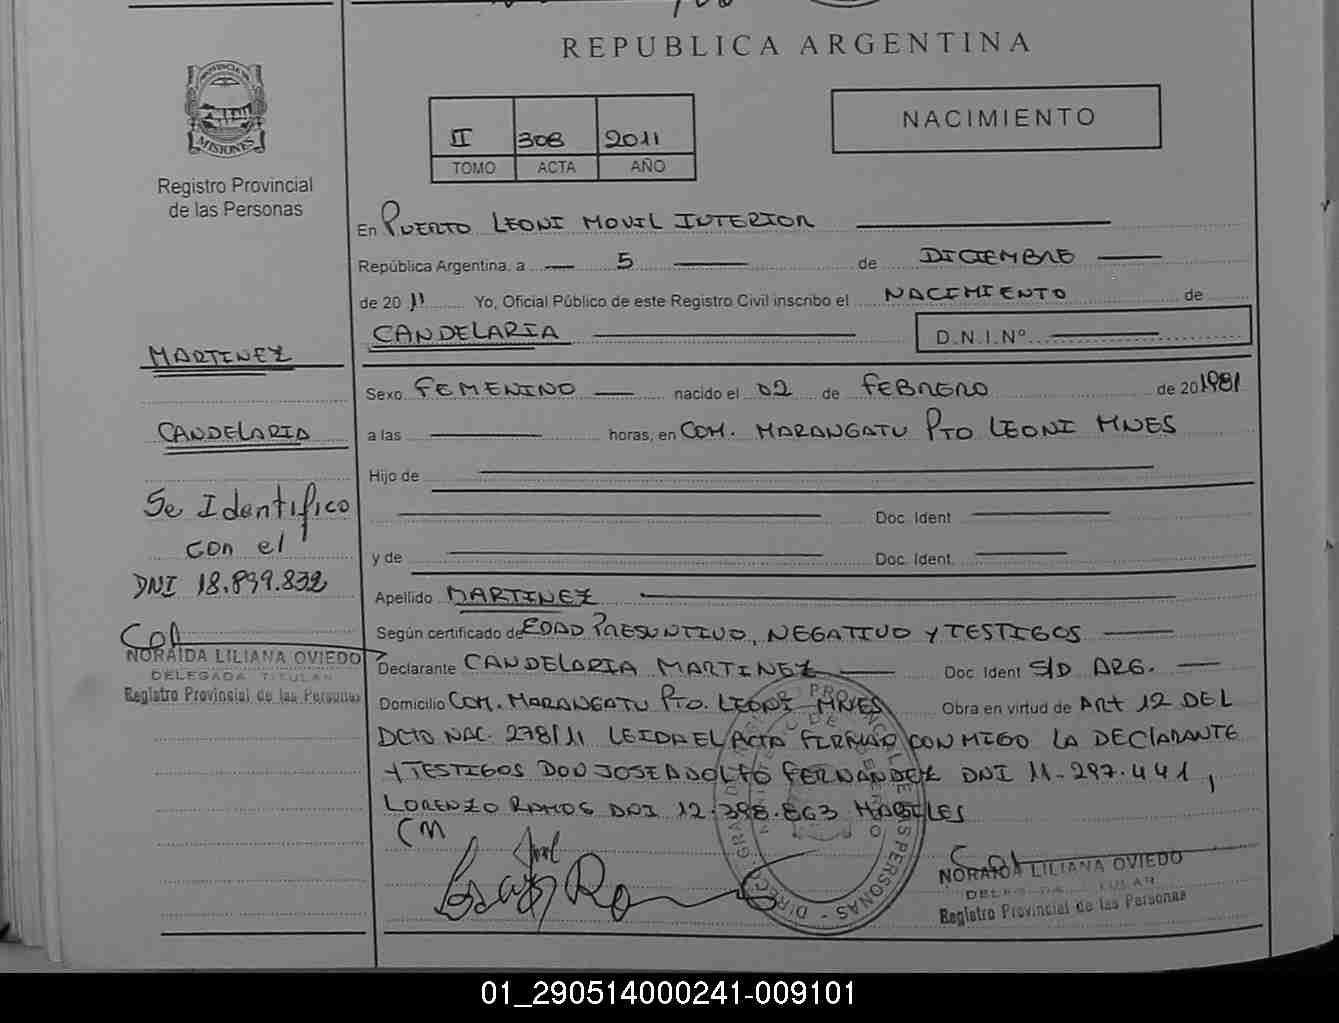 REPUBLICA ARGENTINA
PROVINCIA DE
MISIONES
Registro Provincial
de las Personas
II 308 2011
TOMO ACTA AÑO
NACIMIENTO
En PUERTO LEONI MOVIL INTERIOR
República Argentina, a 5 de DICIEMBRE
de 2011 Yo, Oficial Público de este Registro Civil inscribo el NACIMIENTO de
CANDELARIA D.N.I.Nº
MARTINEZ
CANDELARIA
Se Identifico
con el
DNI 18.899.832
NORAIDA LILIANA OVIEDO
DELEGADA TITULAR
Registro Provincial de las Personas
Sexo FEMENINO nacido el 02 de FEBRERO de 201981
a las horas, en COM. MARANGATU PTO LEONI MNES
Hijo de
Doc. Ident
y de Doc. Ident.
Apellido MARTINEZ
Según certificado de EDAD PRESUNTIVO, NEGATIVO Y TESTIGOS
Declarante CANDELARIA MARTINEZ Doc. Ident S/D ARG.
Domicilio COM. MARANGATU PTO. LEONI MNES Obra en virtud de ART 12 DEL
DCTO NAC. 278/11 LEIDA EL ACTA FIRMAN CONMIGO LA DECLARANTE
Y TESTIGOS DON JOSE ADOLFO FERNANDEZ DNI 11.297.441,
LORENZO RAMOS DNI 12.398.863 HABILES
CM
NORAIDA LILIANA OVIEDO
Registro Provincial de las Personas
01_290514000241-009101